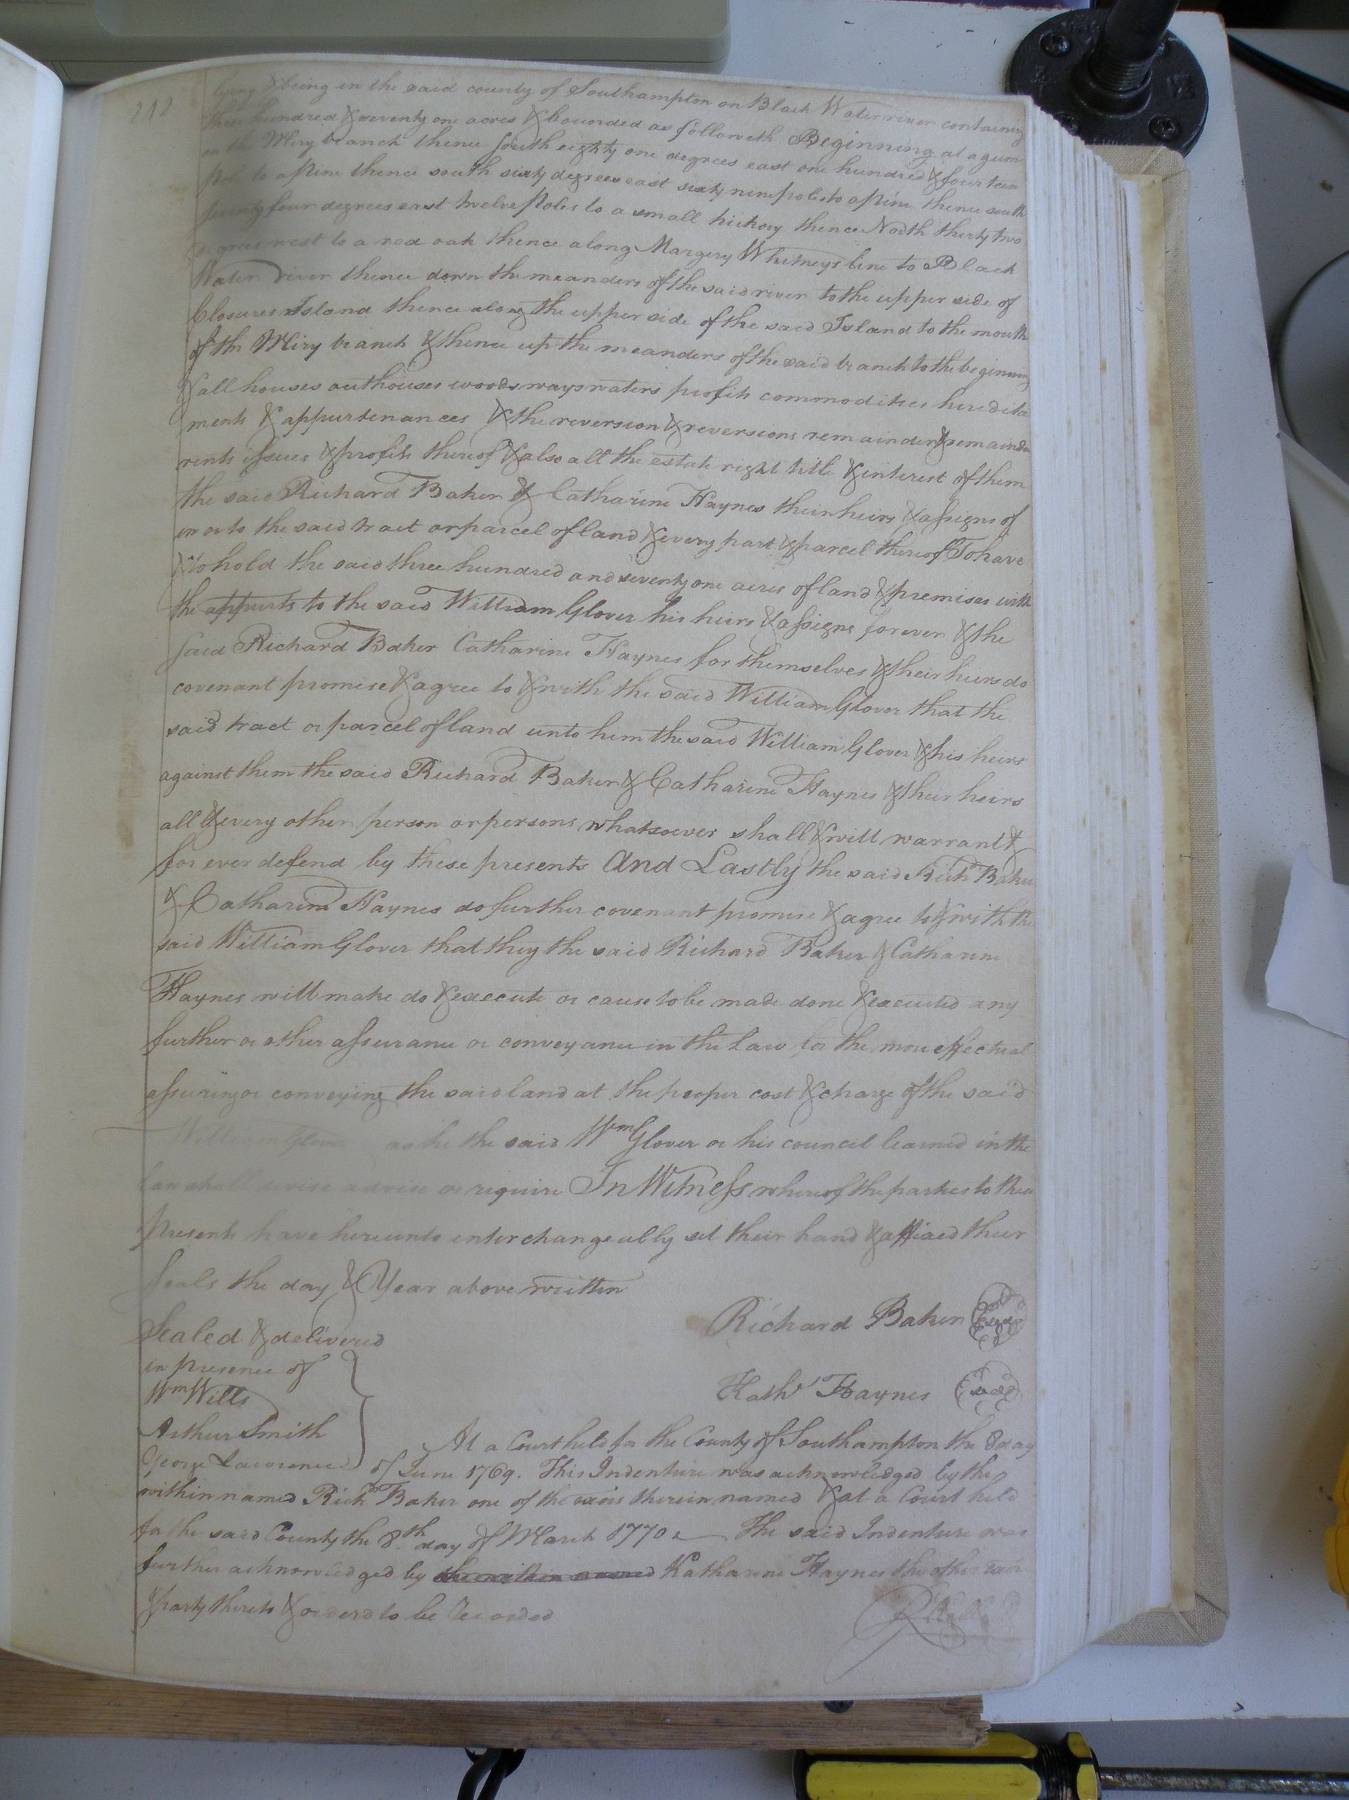 212
lying & being in the said county of Southampton on Black Water river containing
three hundred & seventy one acres & bounded as followeth Beginning at a gum
on the Miry branch thence south eighty one degrees east one hundred & fourteen
pole to a pine thence south sixty degrees east sixty nine poles to a pine thence south
seventy four degrees east twelve poles to a small hickory thence North thirty two
degrees west to a red oak thence along Margery Whitneys line to Black
Water river thence down the meanders of the said river to the upper side of
Closures Island thence along the upper side of the said Island to the mouth
of the Miry branch & thence up the meanders of the said branch to the beginning
& all houses outhouses woods ways waters profits commodities heredita
ments & appurtenances & the reversion & reversions remainder & remainders
rents issues & profits thereof & also all the estate right title & interest of them
the said Richard Baker & Catharine Haynes their heirs & assigns of
in or to the said tract or parcel of land & every part & parcel thereof To have
& to hold the said three hundred and seventy one acres of land & premises with
the appurts to the said William Glover his heirs & assigns forever & the
said Richard Baker Catharine Haynes for themselves & their heirs do
covenant promise & agree to & with the said William Glover that the
said tract or parcel of land unto him the said William Glover & his heirs
against them the said Richard Baker & Catharine Haynes & their heirs
all & every other person or persons whatsoever shall & will warrant &
for ever defend by these presents And Lastly the said Richd Baker
& Catharine Haynes do further covenant promise & agree to & with the
said William Glover that they the said Richard Baker & Catharine
Haynes will make do & execute or cause to be made done & executed any
further or other assurance or conveyance in the Law for the more effectual
assuring or conveying the said land at the proper cost & charge of the said
William Glover as he the said Wm Glover or his council learned in the
Law shall devise advise or require In Witness whereof the parties to these
presents have hereunto interchangeably set their hand & affixed their
seals the day & Year above written
Richard Baker (seal)
Sealed & delivered
in presence of
Kath' Haynes (seal)
Wm Wills
Arthur Smith
George Lawrence
At a Court held for the County of Southampton the 8 day
of June 1769. This Indenture was acknowledged by the
within named Richd Baker one of the therein named & at a Court held
for the said County the 8th day of March 1770 The said Indenture was
further acknowledged by the within named Katharine Haynes the other
party thereto & orderd to be recorded